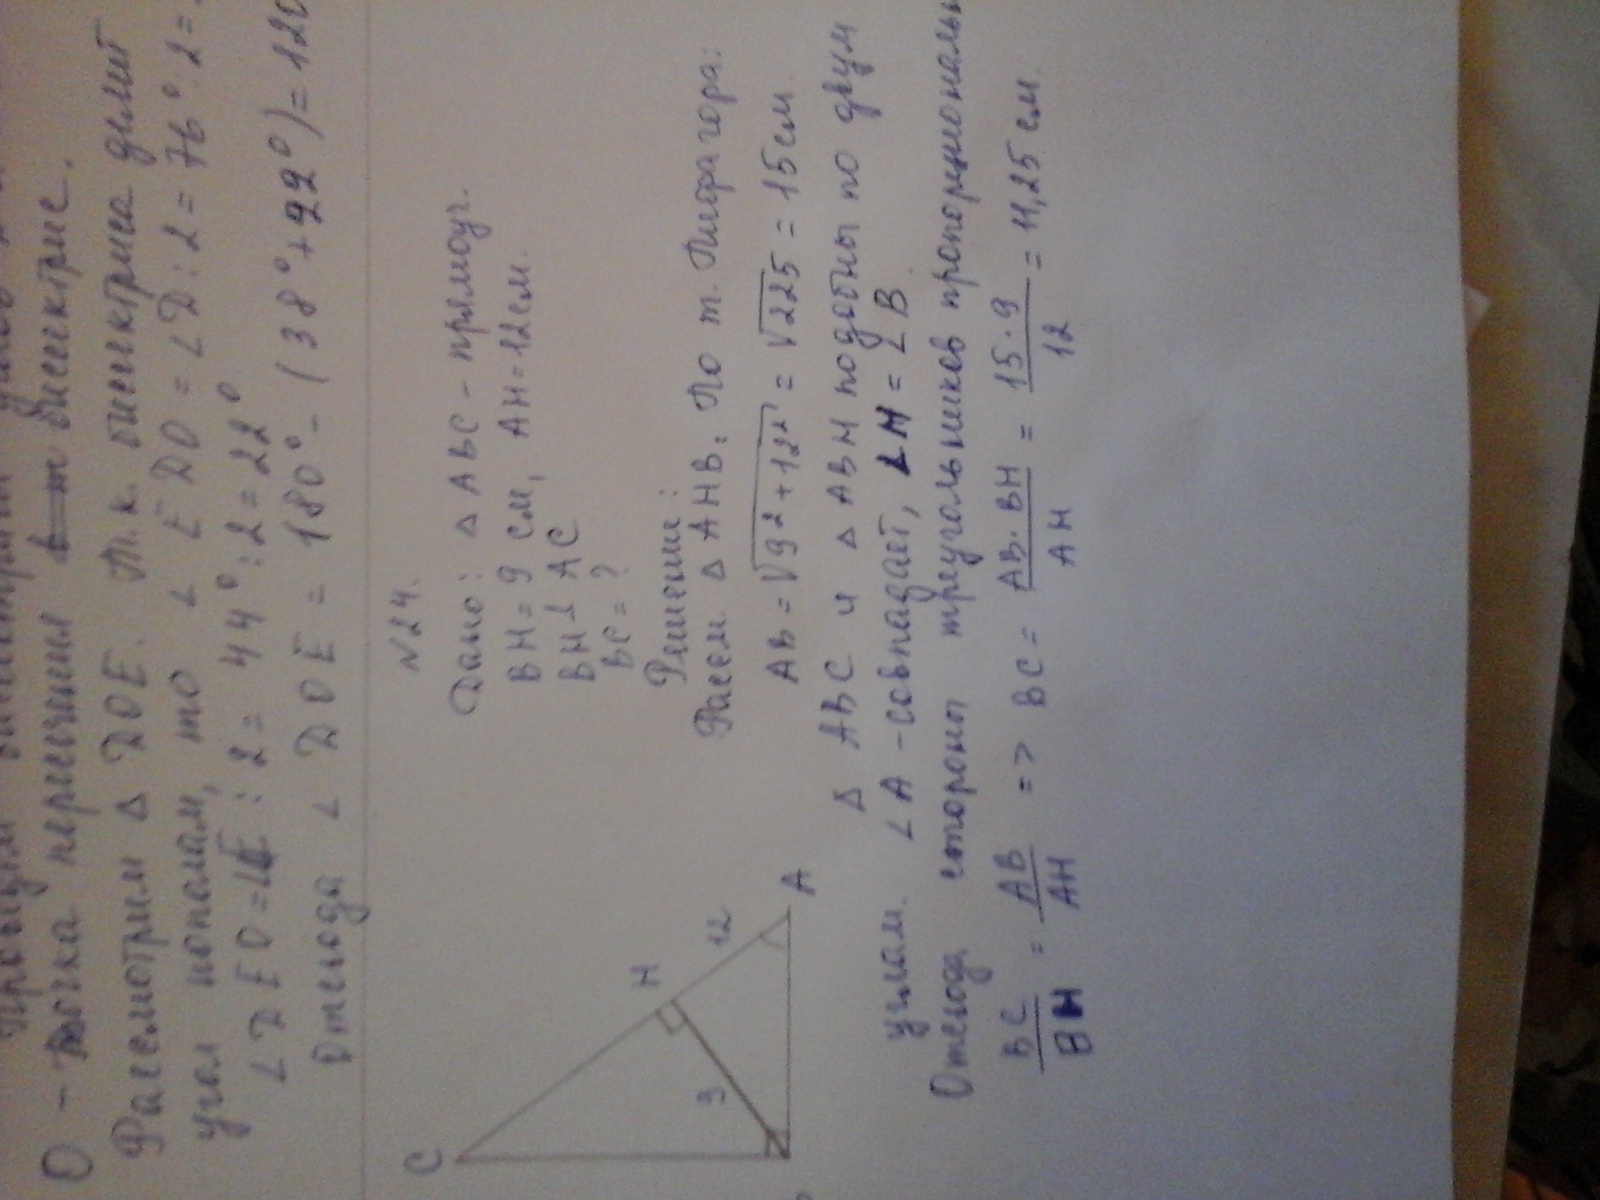 О - точка пересечения биссектрис.
Рассмотрим △ DOE. Т.к. биссектриса делит
угол пополам, то ∠ EDO = ∠D : 2 = 76° : 2 =
∠DEO = ∠E : 2 = 44° : 2 = 22°
Отсюда ∠ DOE = 180° - (38° + 22°) = 120
N24.
Дано: △ ABC - прямоуг.
BH = 9 см, AH = 12 см.
BH ⊥ AC
BC = ?
Решение:
Рассм △ AHB: По т. Пифагора:
AB = √9² + 12² = √225 = 15 см
△ ABC и △ ABH подобны по двум
углам. ∠A - совпадает, ∠H = ∠B.
Отсюда стороны треугольников пропорциональны
BC/BH = AB/AH => BC = AB·BH/AH = 15·9/12 = 11,25 см
C
H
12
9
A